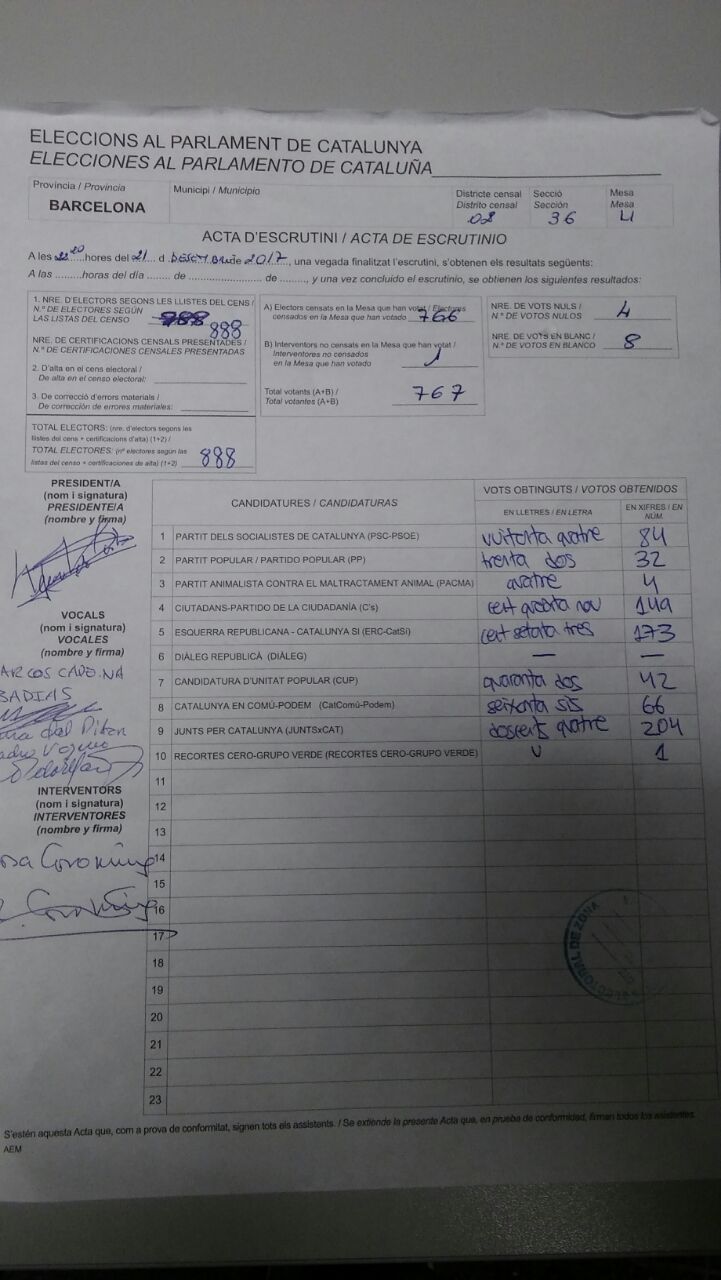 ELECCIONS AL PARLAMENT DE CATALUNYA
ELECCIONES AL PARLAMENTO DE CATALUÑA
Provincia / Provincia
BARCELONA
Municipi / Municipio
Districte censal
Distrito censal
02
Secció
Sección
36
Mesa
Mesa
U
ACTA D'ESCRUTINI / ACTA DE ESCRUTINIO
A les 22 20 hores del 21 d desembre de 2017, una vegada finalitzat l'escrutini, s'obtenen els resultats següents:
A las .........horas del día ....... de ................. de ........, y una vez concluido el escrutinio, se obtienen los siguientes resultados:
1. NRE. D'ELECTORS SEGONS LES LLISTES DEL CENS /
N.º DE ELECTORES SEGÚN
LAS LISTAS DEL CENSO
888
NRE. DE CERTIFICACIONS CENSALS PRESENTADES /
N.º DE CERTIFICACIONES CENSALES PRESENTADAS
2. D'alta en el cens electoral /
De alta en el censo electoral:
3. De correcció d'errors materials /
De corrección de errores materiales:
TOTAL ELECTORS: (nre. d'electors segons les
llistes del cens + certificacions d'alta) (1+2) /
TOTAL ELECTORES: (nº electores según las
listas del censo + certificaciones de alta) (1+2) 888
A) Electors censats en la Mesa que han votat / Electores
censados en la Mesa que han votado 766
B) Interventors no censats en la Mesa que han votat /
Interventores no censados
en la Mesa que han votado 1
Total votants (A+B) /
Total votantes (A+B) 767
NRE. DE VOTS NULS /
N.º DE VOTOS NULOS 4
NRE. DE VOTS EN BLANC /
N.º DE VOTOS EN BLANCO 8
PRESIDENT/A
(nom i signatura)
PRESIDENTE/A
(nombre y firma)
VOCALS
(nom i signatura)
VOCALES
(nombre y firma)
INTERVENTORS
(nom i signatura)
INTERVENTORES
(nombre y firma)
CANDIDATURES / CANDIDATURAS
VOTS OBTINGUTS / VOTOS OBTENIDOS
EN LLETRES / EN LETRA
EN XIFRES / EN NÚM.
1 PARTIT DELS SOCIALISTES DE CATALUNYA (PSC-PSOE) vuitanta quatre 84
2 PARTIT POPULAR / PARTIDO POPULAR (PP) trenta dos 32
3 PARTIT ANIMALISTA CONTRA EL MALTRACTAMENT ANIMAL (PACMA) quatre 4
4 CIUTADANS-PARTIDO DE LA CIUDADANÍA (C's) cent quaranta nou 149
5 ESQUERRA REPUBLICANA - CATALUNYA SI (ERC-CatSí) cent setanta tres 173
6 DIÀLEG REPUBLICÀ (DIÀLEG) — —
7 CANDIDATURA D'UNITAT POPULAR (CUP) quaranta dos 42
8 CATALUNYA EN COMÚ-PODEM (CatComú-Podem) seixanta sis 66
9 JUNTS PER CATALUNYA (JUNTSxCAT) doscents quatre 204
10 RECORTES CERO-GRUPO VERDE (RECORTES CERO-GRUPO VERDE) U 1
11
12
13
14
15
16
17
18
19
20
21
22
23
S'estén aquesta Acta que, com a prova de conformitat, signen tots els assistents. / Se extiende la presente Acta que, en prueba de conformidad, firman todos los asistentes.
AEM